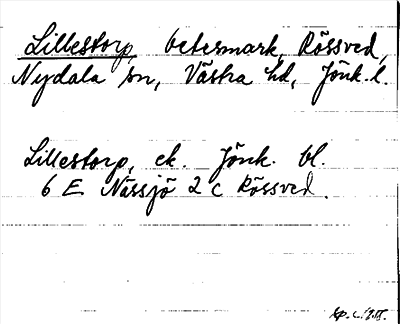 Lillestorp, betesmark, Rössved,
Nydala sn, Västra hd, Jönk. l.
Lillestorp, ek. Jönk. bl.
6 E Nässjö 2 c Rössved.